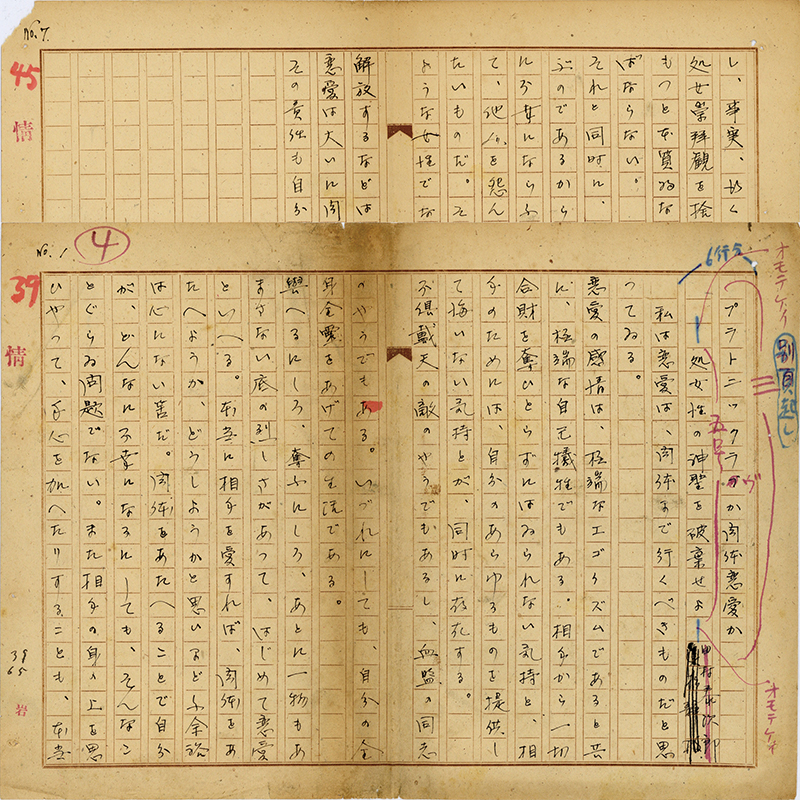 No. 7.
45
情
し、事実、
処女崇拝観を捨
もつと本質的な
ばならない。
それと同時に、
ぶのであるから
女にならふ
て、他人を怨ん
たいものだ。そ
ような女性でな
解放するなどは
恋愛は大いに肉
その責任も自分
No. 1
4
39
情
オモテケイ
別頁起し
6行分
プラトニックラヴか肉体恋愛か
五号
処女性の神聖を破棄せよ
田村泰次郎
オモテケイ
私は恋愛は、肉体まで行くべきものだと思
つてゐる。
恋愛の感情は、極端なエゴイズムであると共
に、極端な自己犠牲でもある。相手から一切
合財を奪ひとらずにはゐられない気持と、相
手のためには、自分のあらゆるものを提供し
て悔いない気持とが、同時に存在する。
不倶戴天の敵のやうでもあるし、血盟の同志
のやうでもある。いづれにしても、自分の全
身全霊をあげての生活である。
與へるにしろ、奪ふにしろ、あとに一物もあ
まさない底の烈しさがあつて、はじめて恋愛
といへる。本当に相手を愛すれば、肉体をあ
たへようか、どうしようかと思いまどふ余裕
は心にない筈だ。肉体をあたへることで自分
が、どんなに不幸になるにしても、そんなこ
とぐらゐ問題でない。また相手の身の上を思
ひやつて、手心を加へたりすることも、本当
39
65
岩